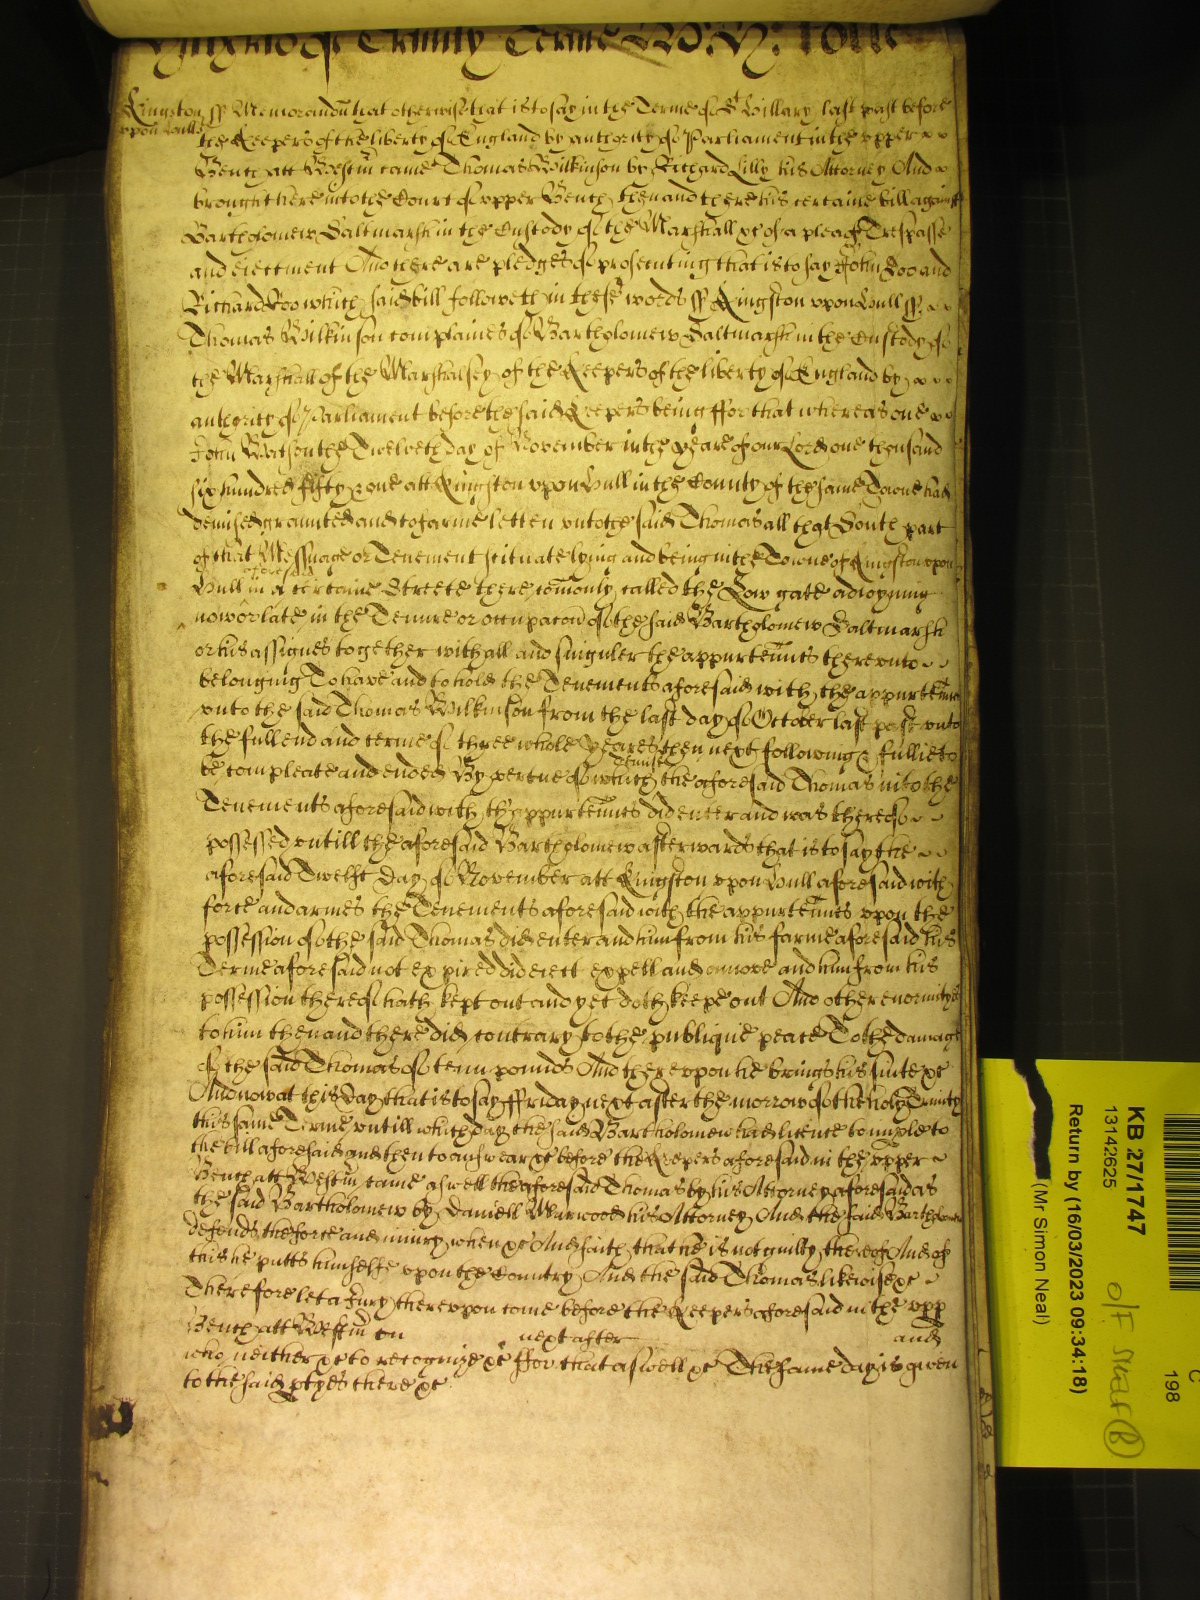 of Trinity Terme
Kingston ss Memorandu that otherwise that is to say in the Terme of St Hillary last past before
upon Hull
the Keepers of the liberty of England by authority of Parliament in the upper
Bench att Westm came Thomas Wilkinson by Richard Lilly his Attorney And
brought here into the Court of upper Bench then and there his certaine bill against
Bartholomew Saltmarsh in the Custody of the Marshall &c of a plea of Trespasse
and eiectment And there are pledges of prosecuting that is to say John Doo and
Richard Roo which said bill followeth in these words ss Kingston upon Hull ss
Thomas Wilkinson complaines of Bartholomew Saltmarsh in the Custody of
the Marshall of the Marshalsey of the Keepers of the liberty of England by
authority of Parliament before the said Keepers being ffor that whereas one
John Watson the Twelveth day of November in the yeare of our Lord one thousand
six hundred fifty & one att Kingston upon Hull in the County of the same Towne had
demised graunted and to farme letten unto the said Thomas all that South part
of that Messuage or Tenement scituate lying and being in the Towne of Kingston upon
Hull aforesaid in a certaine Streete there comonly called the Low gate adioyning
now or late in the Tenure or occupacon of the said Bartholomew Saltmarsh
or his assignes together with all and singuler the appurtennts thereunto
belonging To have and to hold the Tenements aforesaid with the appurtennts
unto the said Thomas Wilkinson from the last day of October last past unto
the full end and terme of three whole yeares then next following & fullie to
be compleate and ended By vertue of which demise the aforesaid Thomas into the
Tenements aforesaid with thappurtennts did enter and was thereof
possessed untill the aforesaid Bartholomew afterwards that is to say the
aforesaid Twelft day of November att Kingston upon Hull aforesaid with
force and armes the Tenements aforesaid with the appurtennts upon the
possession of the said Thomas did enter and him from his farme aforesaid his
Terme aforesaid not expired did eiect expell and amove and him from his
possession thereof hath kept out and yet doth keepe out And other enormityes
to him then and there did contrary to the publique peace To the damage
of the said Thomas of tenn pounds And thereupon he brings his suite &c
And now at this day that is to say ffriday next after the morrow of the holy Trinity
this same Terme untill which day the said Bartholomew had licence to imple to
the bill aforesaid and then to answear &c before the Keepers aforesaid in the upper
Bench att Westm came aswell the aforesaid Thomas by his Attorney aforesaid as
the said Bartholomew by Daniell Marwood his Attorney And the said Bartholomew
defends the force and iniury when &c And saith that he is not guilty thereof And of
this he putts himselfe upon the Country And the said Thomas likewise &c
Therefore let a Jury thereupon come before the Keepers aforesaid in the upp
Bench att Westm on next after and
who neither &c to recognize &c ffor that aswell &c The same day is given
to the said ptyes there &c
KB 27/1747
13142625
Return by (16/03/2023 09:34:18)
(Mr Simon Neal)
C
198